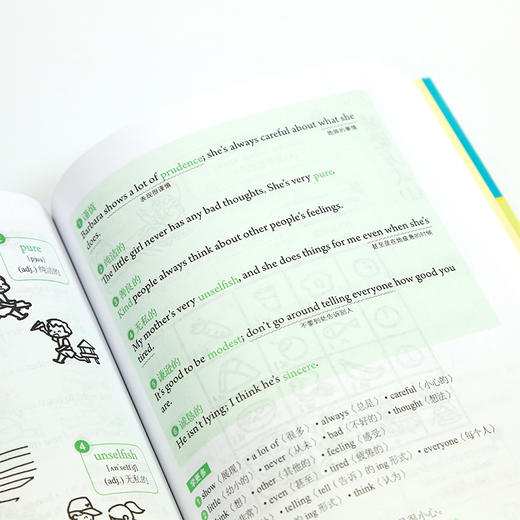 pure
[pjʊɚ]
(adj.) 纯洁的
4
unselfish
[ʌnˋsɛlfɪʃ]
(adj.) 无私的
1 谨慎
Barbara shows a lot of prudence; she's always careful about what she
表现很谨慎
她做的事情
does.
2 纯洁的
The little girl never has any bad thoughts. She's very pure.
3 善良的
Kind people always think about other people's feelings.
4 无私的
My mother's very unselfish, and she does things for me even when she's
甚至是在她疲惫的时候
tired.
5 谦逊的
It's good to be modest; don't go around telling everyone how good you
不要到处告诉别人
are.
6 诚恳的
He isn't lying; I think he's sincere.
1 show (展现) • a lot of (很多) • always (总是) • careful (小心的)
2 little (幼小的) • never (从未) • bad (不好的) • thought (想法)
3 other (其他的) • feeling (感受)
even (甚至) • tired (疲惫的)
telling (tell (告诉) 的 ing 形式) • everyone (每个人)
think (认为)